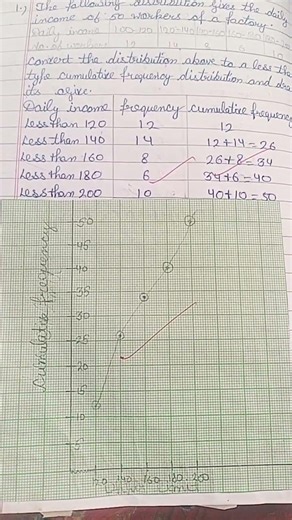 1.) The following distribution gives the daily
income of 50 workers of a factory.
Daily income 100-120 120-140
no. of workers 12 14 8 6 10
convert the distribution above to a less than
type cumulative frequency distribution and draw
its ogive.
Daily income frequency cumulative frequency
Less than 120 12 12
Less than 140 14 12+14=26
Less than 160 8 26+8=34
Less than 180 6 34+6=40
Less than 200 10 40+10=50
Cumulative frequency
50
45
40
35
30
25
20
15
10
120 140 160 180 200